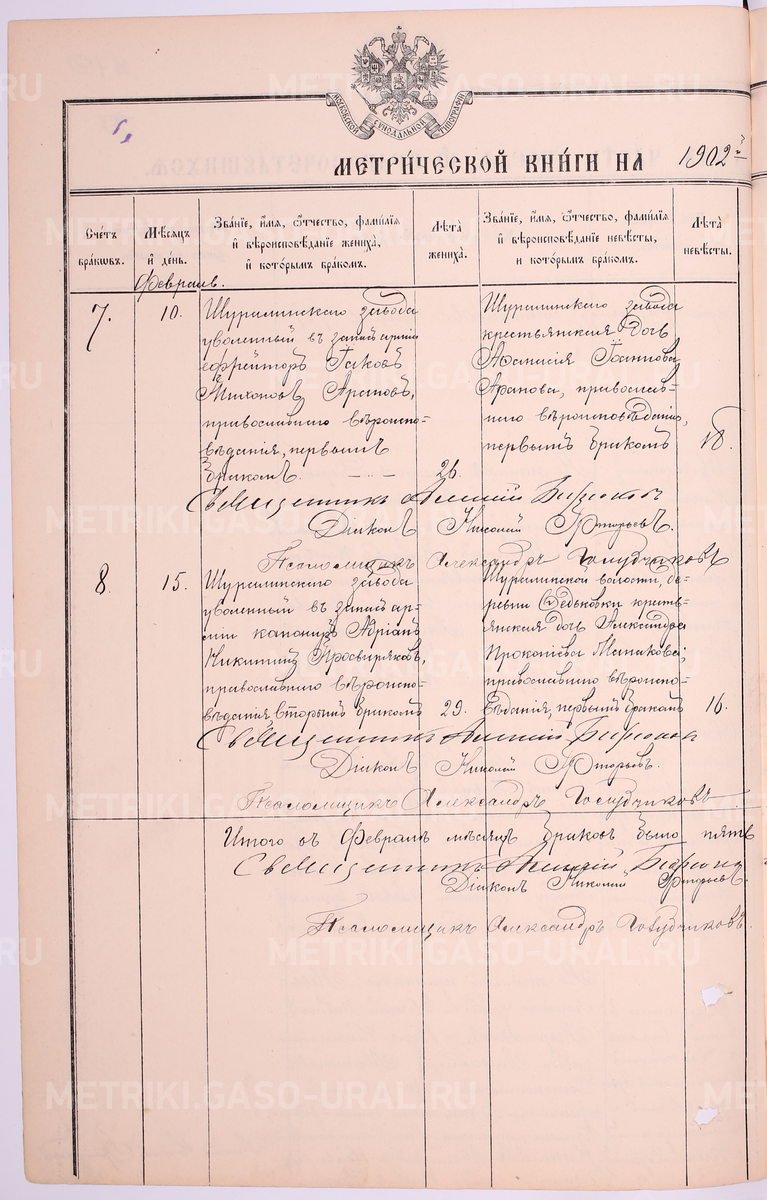 МОСКОВСКОЙ СѴНОДАЛЬНОЙ ТИПОГРАФІИ
МЕТРИ́ЧЕСКОЙ КНИ́ГИ НА 1902 й
Счетъ браковъ.
Мѣсяцъ и день.
Званіе, имя, отчество, фамилія
и вѣроисповѣданіе жениха,
и которымъ бракомъ.
Лѣта жениха.
Званіе, имя, отчество, фамилія
и вѣроисповѣданіе невѣсты,
и которымъ бракомъ.
Лѣта невѣсты.
Февраль.
7.
10.
Шуралинскаго завода
уволенный въ запасъ арміи
ефрейторъ Іаковъ
Араповъ,
православнаго вѣроиспо-
вѣданія, первымъ
бракомъ.
26.
Шуралинскаго завода
крестьянская дочь
Аѳанасія Іоаннова
Арапова, православ-
наго вѣроисповѣданія,
первымъ бракомъ
18.
Священникъ Алексій Бирюковъ
Діаконъ Николай Григорьевъ.
Псаломщикъ Александръ Голубчиковъ
8.
15.
Шуралинскаго завода
уволенный въ запасъ ар-
міи Адріанъ
Никитинъ Просвиряковъ,
православнаго вѣроиспо-
вѣданія, вторымъ бракомъ
29.
Шуралинской волости, де-
ревни Ѳедьковки кресть-
янская дочь Александра
Прокопіева Минакова,
православнаго вѣроиспо-
вѣданія, первымъ бракомъ
16.
Священникъ Алексій Бирюковъ
Діаконъ Николай Григорьевъ.
Псаломщикъ Александръ Голубчиковъ.
Итого въ Февралѣ мѣсяцѣ браковъ было пять
Священникъ Алексій Бирюковъ
Діаконъ Николай Григорьевъ.
Псаломщикъ Александръ Голубчиковъ.
METRIKI.GASO-URAL.RU